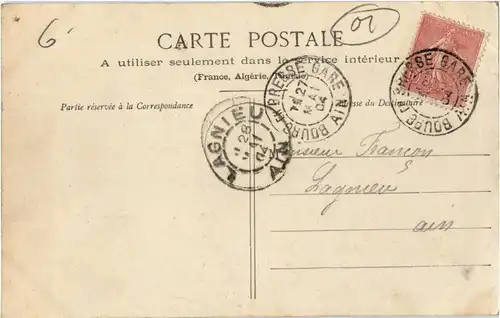 6
01
CARTE POSTALE
A utiliser seulement dans le service intérieur
(France, Algérie, Tunisie)
Partie réservée à la Correspondance
Adresse du Destinataire
BOURG-PRESSE GARE AIN
27 MAI 04
BOURG-PRESSE GARE AIN
LAGNIEU AIN
28 MAI 04
Monsieur Françon
Lagnieu
ain